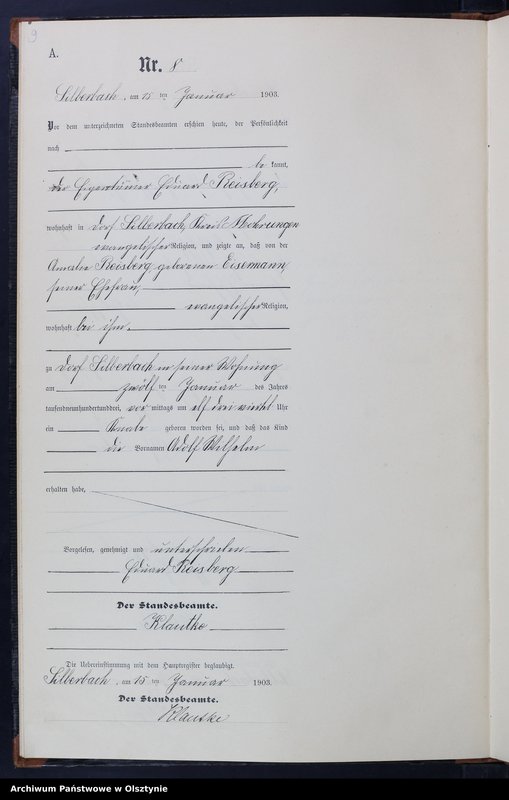 9
A.
Nr. 8
Silberbach, am 15 ten Januar 1903.
Vor dem unterzeichneten Standesbeamten erschien heute, der Persönlichkeit
nach
be kannt,
der Eigentümer Eduard Reisberg,
wohnhaft in Dorf Silberbach, Kreis Mohrungen
evangelischer Religion, und zeigte an, daß von der
Amalie Reisberg geborenen Eisermann,
seiner Ehefrau,
evangelischer Religion,
wohnhaft bei ihm,
zu Dorf Silberbach in seiner Wohnung
am zwölf ten Januar des Jahres
tausendneunhundertunddrei, vor mittags um elf drei viertel Uhr
ein Knabe geboren worden sei, und daß das Kind
die Vornamen Adolf Wilhelm
erhalten habe,
Vorgelesen, genehmigt und unterschrieben
Eduard Reisberg
Der Standesbeamte.
Klautke
Die Uebereinstimmung mit dem Hauptregister beglaubigt.
Silberbach, am 15 ten Januar 1903.
Der Standesbeamte.
Klautke
Archiwum Państwowe w Olsztynie